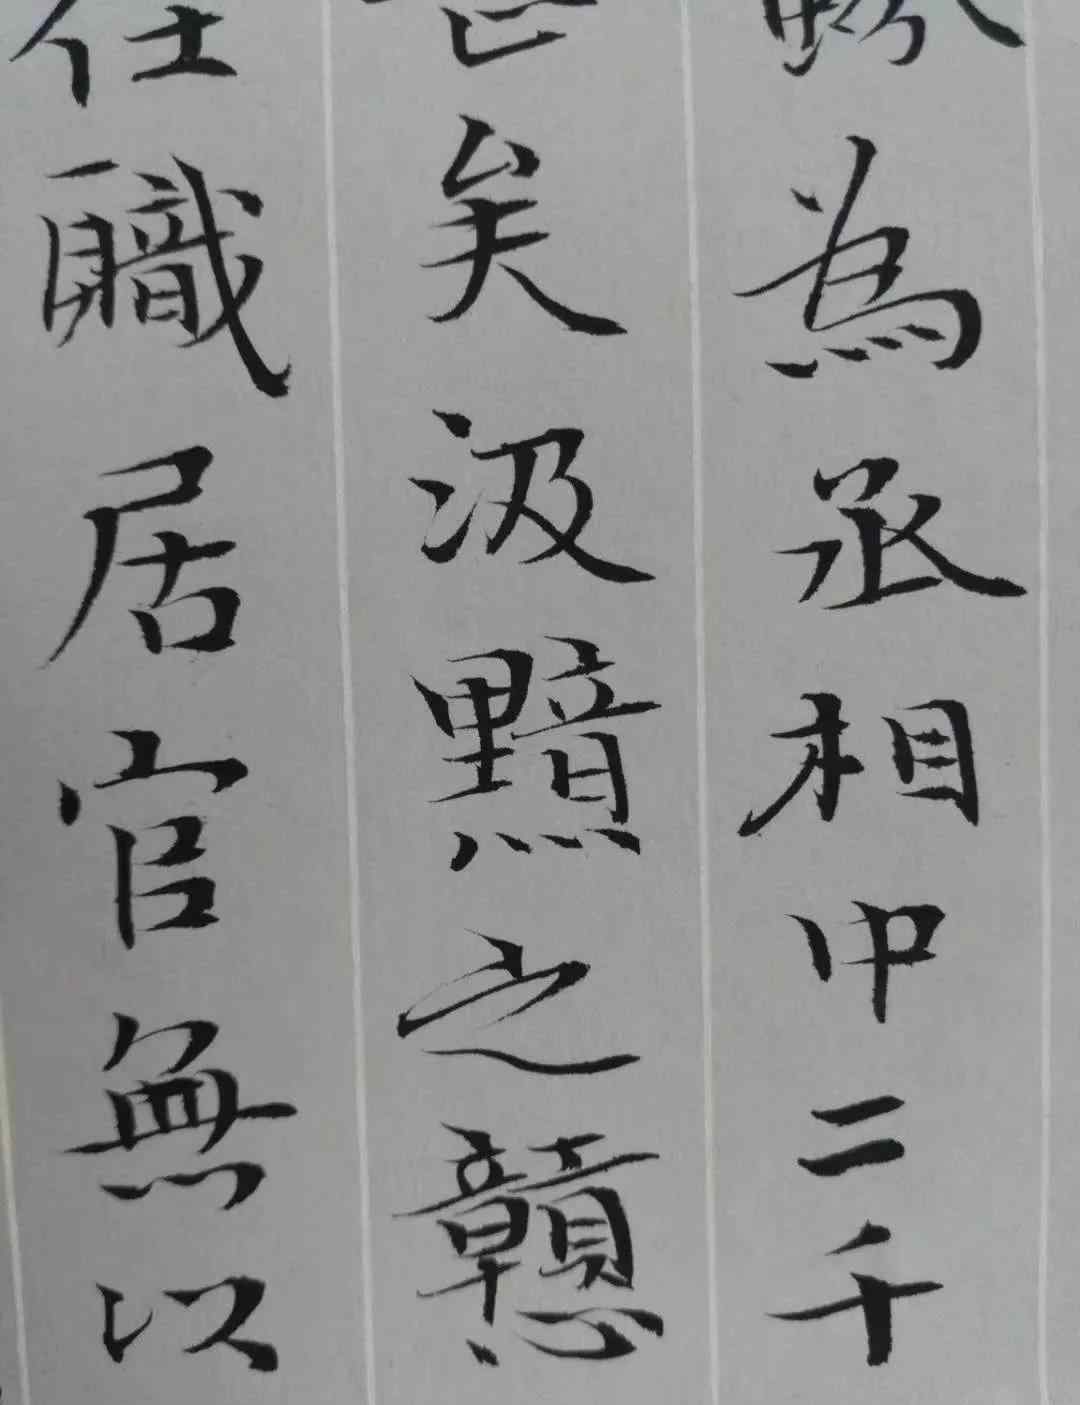 蚡為丞相中二千
甚矣汲黯之戇
任職居官無以